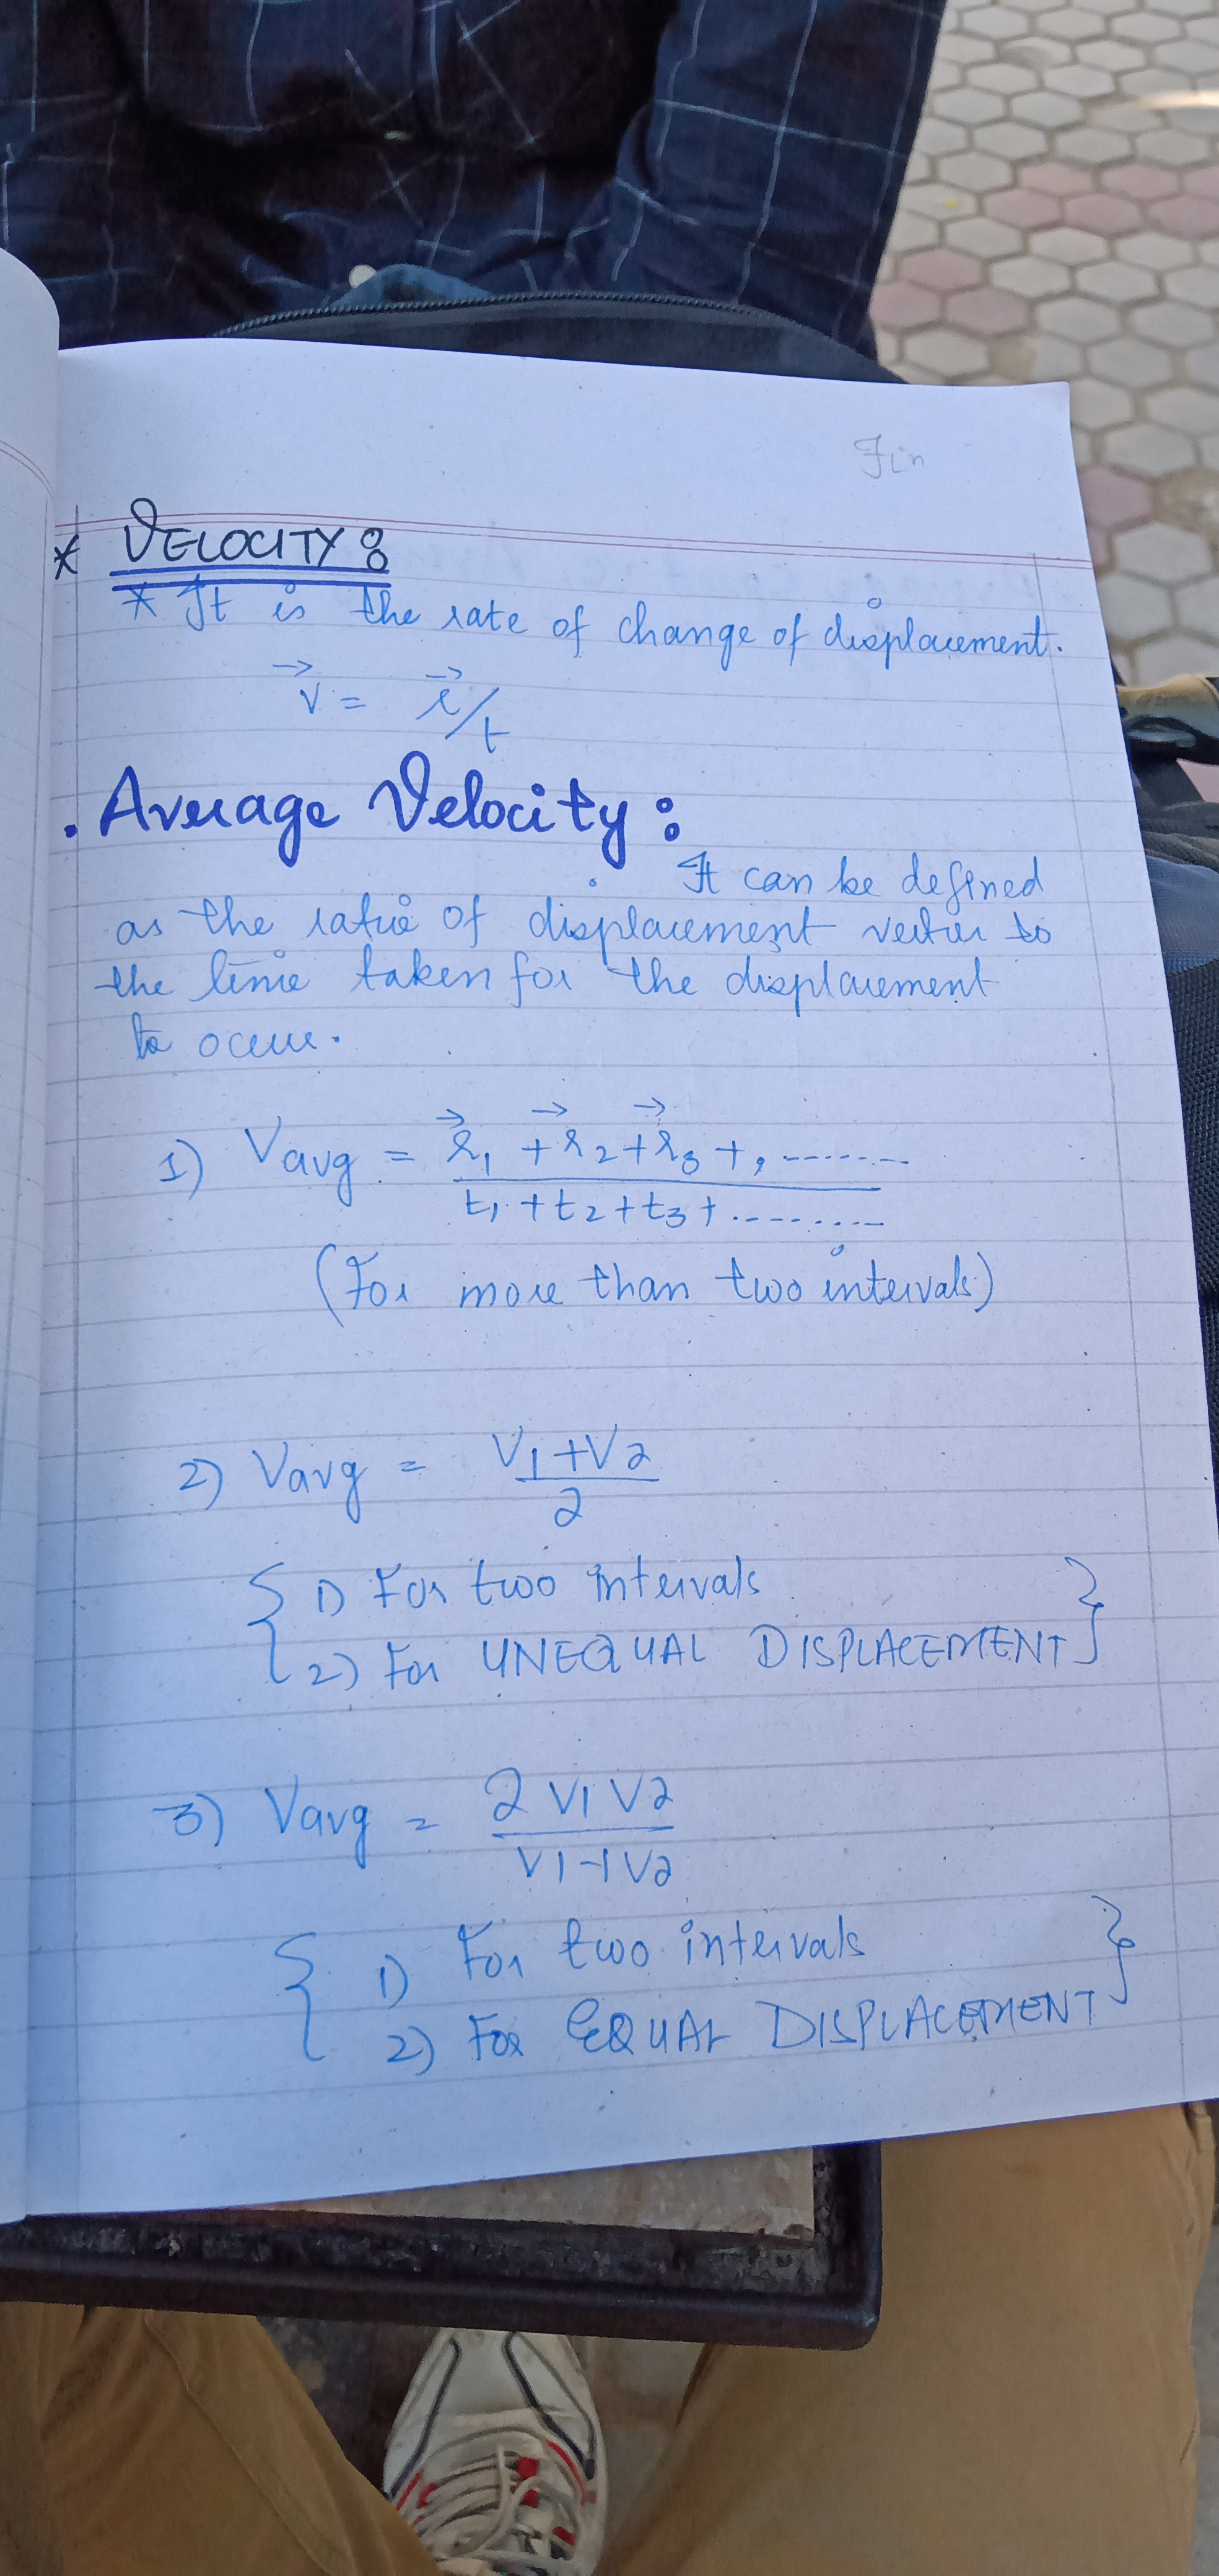 Fin
* VELOCITY :
* It is the rate of change of displacement.
v⃗ = r⃗/t
. Average Velocity :
It can be defined
as the ratio of displacement vector to
the time taken for the displacement
to occur.
1) Vavg = (r⃗1 + r⃗2 + r⃗3 + , .......) / (t1 + t2 + t3 + .........)
(For more than two intervals)
2) Vavg = (V1 + V2) / 2
{ 1) For two intervals
2) For UNEQUAL DISPLACEMENT }
3) Vavg = 2 V1 V2 / (V1 + V2)
{ 1) For two intervals
2) For EQUAL DISPLACEMENT }